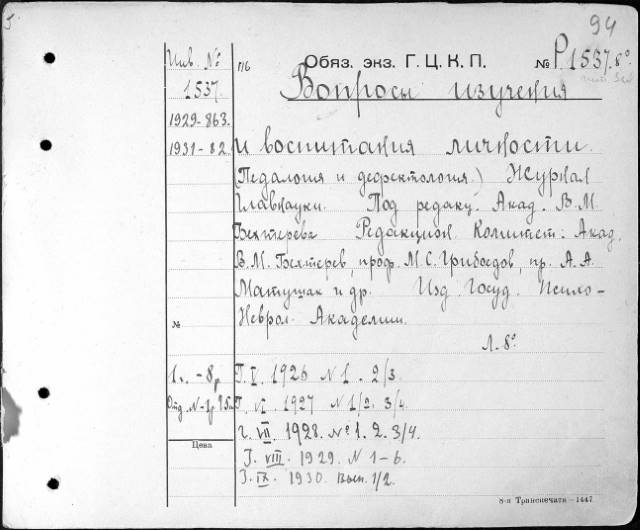 94
Инв. №
п/б
Обяз. экз. Г. Ц. К. П.
№ Р1537. 8°
1537.
1929-863.
1931-82.
Вопросы изучения
и воспитания личности.
(Педалогия и дефектология.) Журнал
Главнауки. Под редакц. Акад. В. М.
Бехтерева Редакцион. Комитет: Акад.
В. М. Бехтерев, проф. М. С. Грибоедов, пр. А. А.
Матушак и др. Изд. Госуд. Психо-
Неврол. Академии.
№
Л. 8°
1. - 8р
Г. V. 1926 № 1. 2/3.
Отд. №-1р
Г. VI. 1927 № 1/2. 3/4.
Г. VII. 1928. № 1. 2. 3/4.
Цена
Г. VIII. 1929. № 1-6.
Г. IX. 1930. Вып. 1/2.
8-я Транспечать-1447